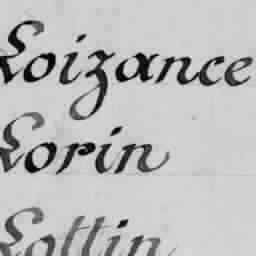 Loizance
Lorin
Lottin